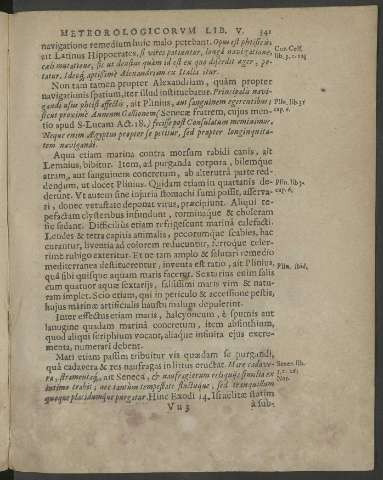 METEOROLOGICORVM LIB. V. 341
navigatione remedium huic malo petebant. Opus est phthisicis,
ait Latinus Hippocrates, si vires patiuntur, longâ navigatione,
cæli mutatione, sic ut densius quàm id est ex quo discedit æger, pe-
tatur. Ideoq́ aptissimè Alexandriam ex Italia itur.
Cor. Cels.
lib. 3. c. 22.
Non tam tamen propter Alexandriam, quàm propter
navigationis spatium, iter istud instituebatur. Principalis navi-
gandi usus phthisi affectis, ait Plinius, aut sanguinem egerentibus;
sicut proximè Annæum Gallionem (Senecæ fratrem, cujus men-
tio apud S. Lucam Act. 18.) fecisse post Consulatum meminimus.
Neque enim Ægyptus propter se petitur, sed propter longinquita-
tem navigandi.
Plin. lib. 31
cap. 6.
Aqua etiam marina contra morsum rabidi canis, ait
Lemnius, bibitur. Item, ad purganda corpora, bilemque
atram, aut sanguinem concretum, ab alterutrâ parte red-
dendum, ut docet Plinius. Quidam etiam in quartanis de-
derunt. Vt autem sine injuria stomachi sumi possit, asserva-
ri, donec vetustate deponat virus, præcipiunt. Aliqui te-
pefactam clysteribus infundunt, torminaque & choleram
sic sedant. Difficilius etiam refrigescunt marinâ calefacti.
Lendes & tetra capitis animalis, pecorumque scabies, hac
curantur, liventia ad colorem reducuntur,
Et ne tam amplo & salutari remedio
mediterranea destituerentur, inventa est ratio, ait Plinius,
quâ sibi quisque aquam maris faceret. Sextarius enim salis
cum quatuor aquæ sextarijs, salsissimi maris vim & natu-
ram implet. Scio etiam, qui in periculo & accessione pestis,
hujus marinæ artificialis haustu malum depulerint.
Plin. lib. 31.
cap. 6.
Plin. ibid.
Inter effectus etiam maris, halcyoneum, è spumis aut
lanugine quadam marinâ concretum, item absinthium,
quod aliqui seriphium vocant, aliaque infinita ejus excre-
menta, numerari debent.
Mari etiam passim tribuitur vis quædam se purgandi,
quâ cadavera & res naufragas in littus eructat. Mare cadave-
ra, stramentaq́, ait Seneca, & naufragiorum reliquijs similia ex
intimo trahit; nec tantum tempestate fluctuque, sed tranquillum
quoque placidumque purgatur. Hinc Exodi 14. Israëlitæ statim
Senec. lib.
3. c. 26.
Nat.
Vu 3 à sub-